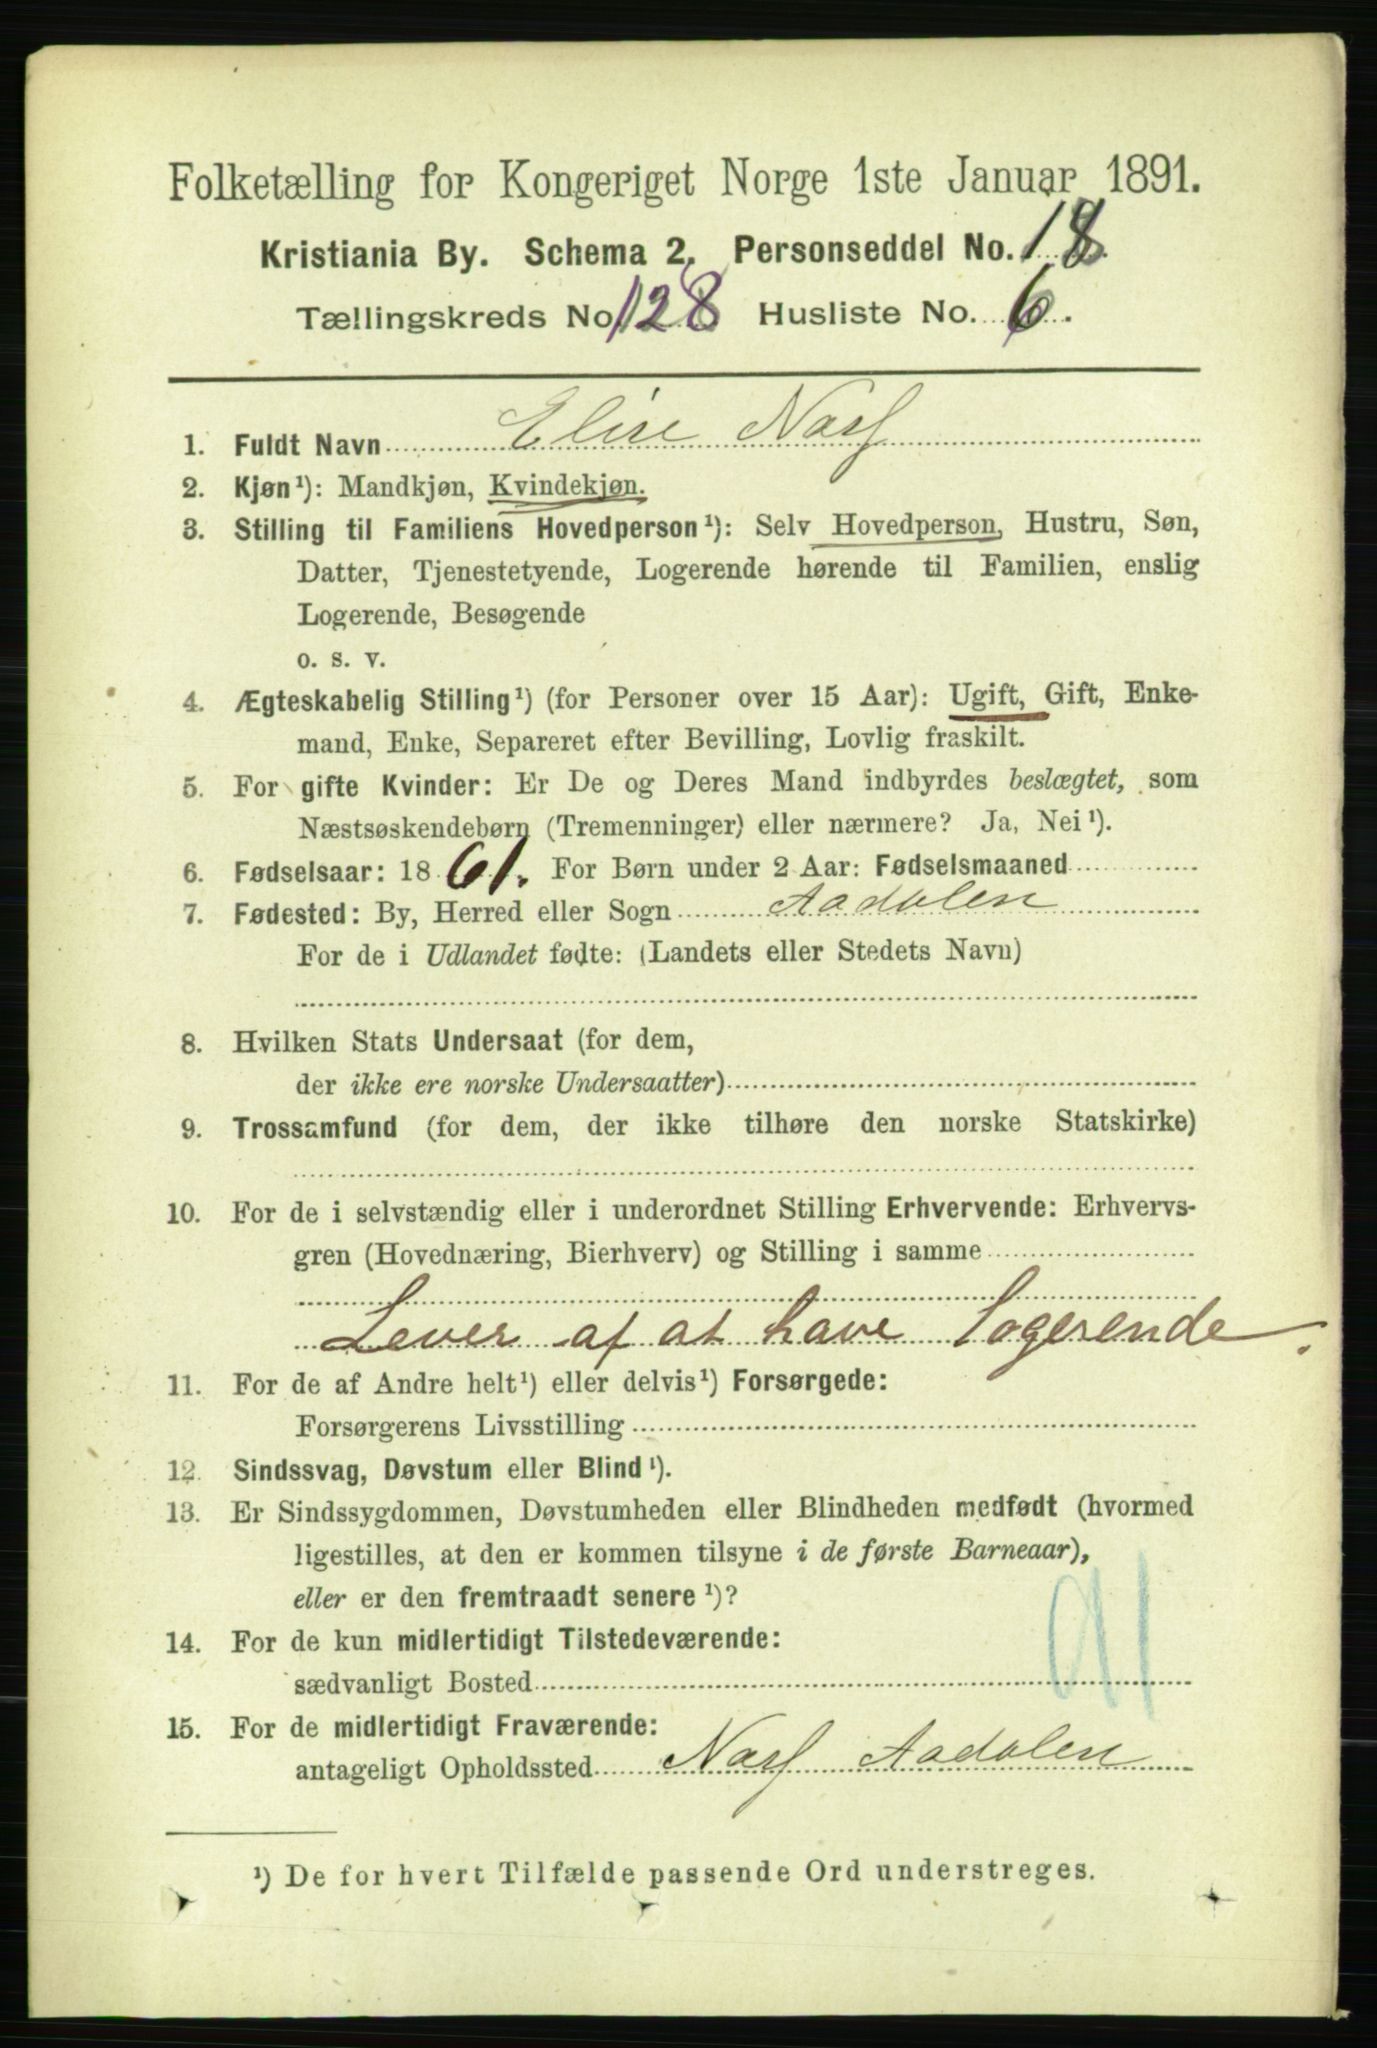 Folketælling for Kongeriget Norge 1ste Januar 1891.
Kristiania By. Schema 2. Personseddel No. 18.
Tællingskreds No. 128 Husliste No. 6.
1. Fuldt Navn Elise Næss
2. Kjøn¹): Mandkjøn, Kvindekjøn.
3. Stilling til Familiens Hovedperson¹): Selv Hovedperson, Hustru, Søn,
Datter, Tjenestetyende, Logerende hørende til Familien, enslig
Logerende, Besøgende
o. s. v.
4. Ægteskabelig Stilling¹) (for Personer over 15 Aar): Ugift, Gift, Enke-
mand, Enke, Separeret efter Bevilling, Lovlig fraskilt.
5. For gifte Kvinder: Er De og Deres Mand indbyrdes beslægtet, som
Næstsøskendebørn (Tremenninger) eller nærmere? Ja, Nei¹).
6. Fødselsaar: 1861. For Børn under 2 Aar: Fødselsmaaned
7. Fødested: By, Herred eller Sogn Aadalen
For de i Udlandet fødte: (Landets eller Stedets Navn)
8. Hvilken Stats Undersaat (for dem,
der ikke ere norske Undersaatter)
9. Trossamfund (for dem, der ikke tilhøre den norske Statskirke)
10. For de i selvstændig eller i underordnet Stilling Erhvervende: Erhvervs-
gren (Hovednæring, Bierhverv) og Stilling i samme
Lever af at have Logerende.
11. For de af Andre helt¹) eller delvis¹) Forsørgede:
Forsørgerens Livsstilling
12. Sindssvag, Døvstum eller Blind¹).
13. Er Sindssygdommen, Døvstumheden eller Blindheden medfødt (hvormed
ligestilles, at den er kommen tilsyne i de første Barneaar),
eller er den fremtraadt senere¹)?
14. For de kun midlertidigt Tilstedeværende:
sædvanligt Bosted
91
15. For de midlertidigt Fraværende:
antageligt Opholdssted Næss Aadalen
¹) De for hvert Tilfælde passende Ord understreges.